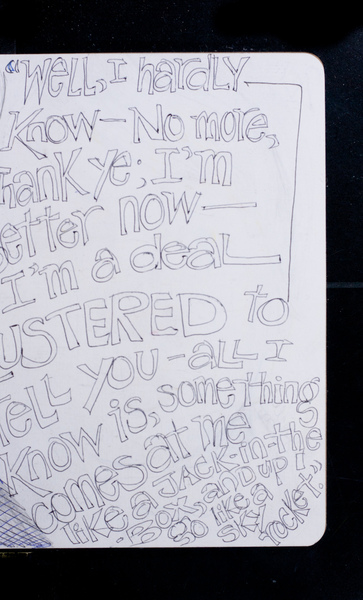 "Well, I hardly
Know — No more,
hank ye; I'm
etter now —
I'm a deal
USTERED to
Tell you — all I
Know is, something
comes at me
like a JACK-in-the
-BOX, and up I
go like a
sky
rocket."